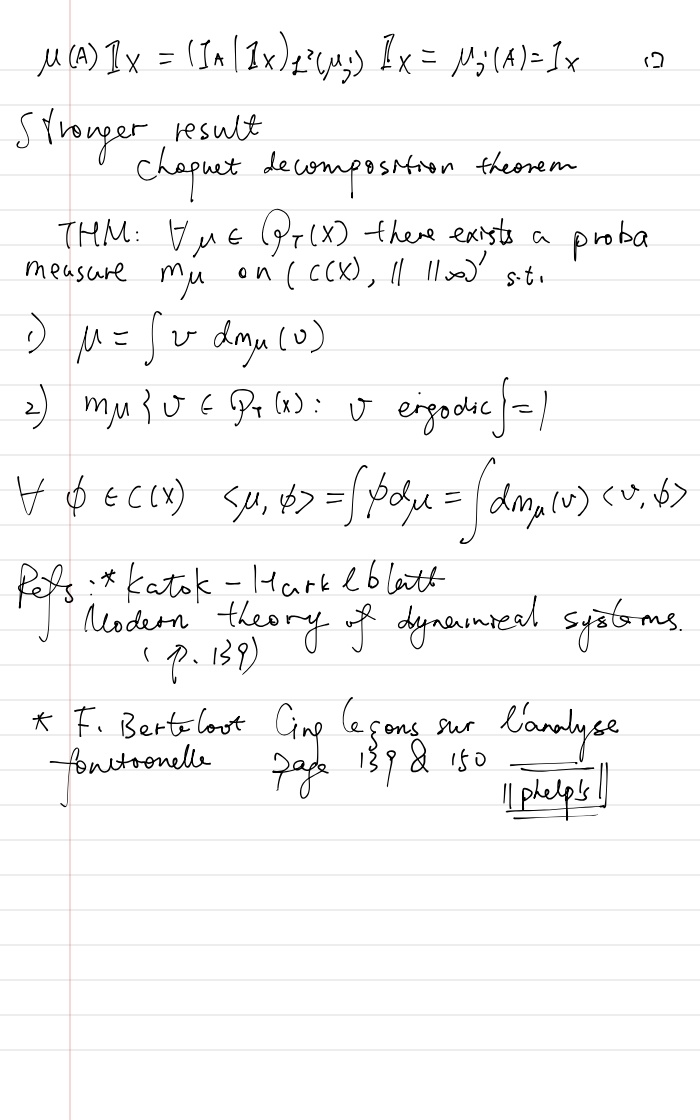 μ(A) 𝟙X = (𝟙A | 𝟙X)_L²(μj) 𝟙X = μj(A) = 𝟙X
Stronger result
Choquet decomposition theorem
THM: ∀ μ ∈ 𝒫_T(X) there exists a proba
measure m_μ on (C(X), || ||∞)' s.t.
1) μ = ∫ ν dm_μ(ν)
2) m_μ { ν ∈ 𝒫_T(X): ν ergodic } = 1
∀ ϕ ∈ C(X) <μ, ϕ> = ∫ϕdμ = ∫dm_μ(ν) <ν, ϕ>
Refs : * Katok -
Modern theory of dynamical systems.
(p. 139)
* F. Berteloot Cinq leçons sur l'analyse
fonctionelle page 139 & 150
|| phelp's ||